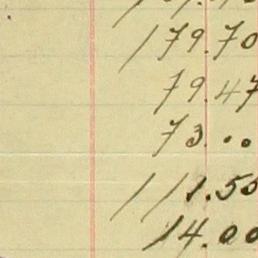 179.70
79.47
73...
111.50
14.00